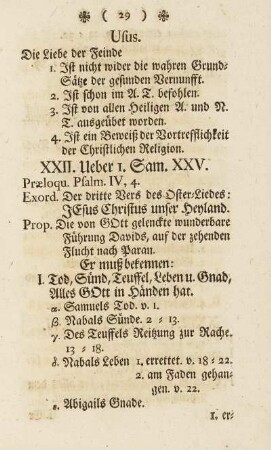 ( 29 )
Usus.
Die Liebe der Feinde
1. Ist nicht wider die wahren Grund-
Sätze der gesunden Vernunfft.
2. Ist schon im A. T. befohlen.
3. Ist von allen Heiligen A. und N.
T. ausgeübet worden.
4. Ist ein Beweiß der Vortrefflichkeit
der Christlichen Religion.
XXII. Ueber 1. Sam. XXV.
Præloqu. Psalm. IV, 4.
Exord. Der dritte Vers des Oster-Liedes:
JEsus Christus unser Heyland.
Prop. Die von GOtt gelenckte wunderbare
Führung Davids, auf der zehenden
Flucht nach Paran.
Er muß bekennen:
I. Tod, Sünd, Teuffel, Leben u. Gnad,
Alles GOtt in Händen hat.
α. Samuels Tod. v. 1.
β. Nabals Sünde. 2 - 13.
γ. Des Teuffels Reitzung zur Rache.
13 - 18.
δ. Nabals Leben 1. errettet. v. 18 - 22.
2. am Faden gehan-
gen. v. 22.
ε. Abigails Gnade.
1. er-